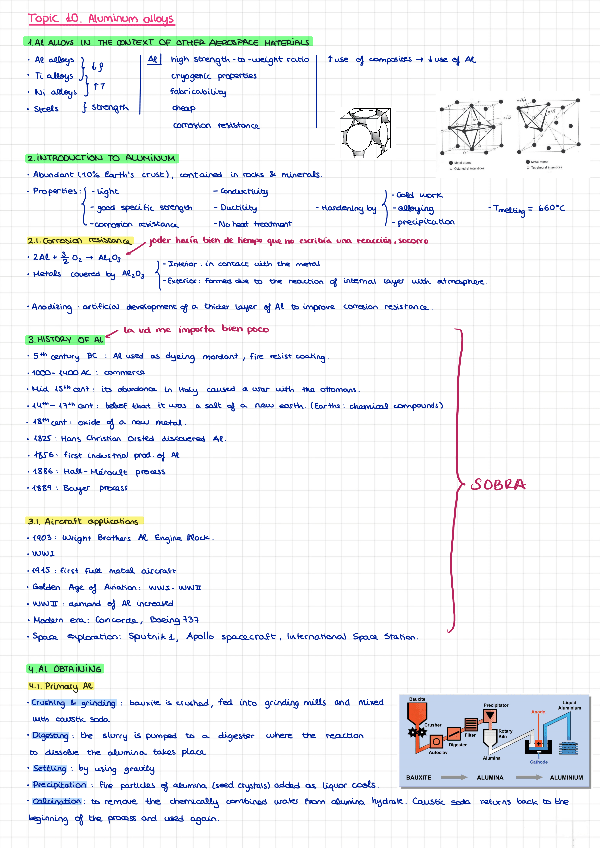 Topic 10. Aluminum alloys
1. Al ALLOYS IN THE CONTEXT OF OTHER AEROSPACE MATERIALS
· Al alloys
· Ti alloys
· Ni alloys
· Steels
↓ρ
↑T
strength
Al
high strength-to-weight ratio
cryogenic properties
fabricability
cheap
corrosion resistance
↑use of composites → ↓use of Al
2. INTRODUCTION TO ALUMINUM
· Abundant (10% Earth's crust), contained in rocks & minerals.
· Properties: - Light - Conductivity
- good specific strength - Ductility
- corrosion resistance - No heat treatment
- Hardening by
- Cold work
- alloying
- precipitation
- Tmelting = 660°C
2.1. Corrosion resistance
joder haría bien de tiempo que no escribía una reacción, socorro
· 2Al + 3/2 O₂ → Al₂O₃
· Metals covered by Al₂O₃
- Interior: in contact with the metal
- Exterior: formed due to the reaction of internal layer with atmosphere.
· Anodizing: artificial development of a thicker layer of Al to improve corrosion resistance.
3. HISTORY OF AL
la vd me importa bien poco
· 5th century BC : Al used as dyeing mordant, fire resist coating.
· 1000-1400 AC : commerce
· Mid 15th cent : its abundance in Italy caused a war with the ottomans.
· 14th - 17th cent : belief that it was a salt of a new earth. (Earths: chemical compounds)
· 18th cent : oxide of a new metal.
· 1825: Hans Christian Orsted discovered Al.
· 1856: first industrial prod. of Al
· 1886: Hall-Méroult process
· 1889: Bayer process
SOBRA
3.1. Aircraft applications
· 1903: Wright Brothers Al Engine Block.
· WW1
· 1915: first full metal aircraft
· Golden Age of Aviation: WW1-WWII
· WWII: demand of Al increased
· Modern era: Concorde, Boeing 737
· Space exploration: Sputnik 1, Apollo spacecraft, International Space Station.
4. Al OBTAINING
4.1. Primary Al
· Crushing & grinding : bauxite is crushed, fed into grinding mills and mixed
with caustic soda.
· Digesting : the slurry is pumped to a digester where the reaction
to dissolve the alumina takes place
· Settling : by using gravity
· Precipitation : fine particles of alumina (seed crystals) added as liquor cools.
· Calcination : to remove the chemically combined water from alumina hydrate. Caustic soda returns back to the
beginning of the process and used again.
Bauxite
Crusher
Autoclav
Digester
Filter
Precipitator
Rotary
Kiln
Alumina
Anode
Cathode
Liquid
Aluminium
BAUXITE
ALUMINA
ALUMINIUM